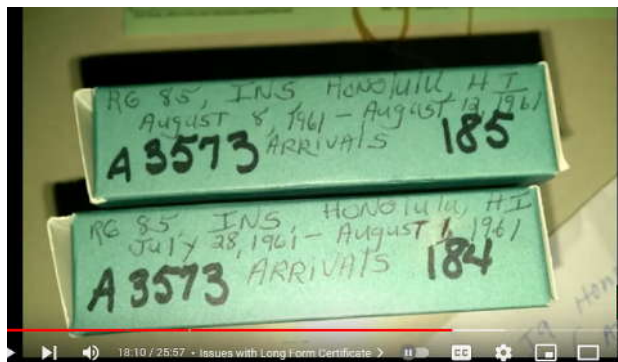 RG 85, INS HONOLULU, HI
AUGUST 8, 1961 - AUGUST 12, 1961
A3573 ARRIVALS 185
RG 85, INS HONOLULU, HI
July 28, 1961 - AUGUST 1, 1961
A3573 ARRIVALS 184
18:10 / 25:57 • Issues with Long Form Certificate >
CC